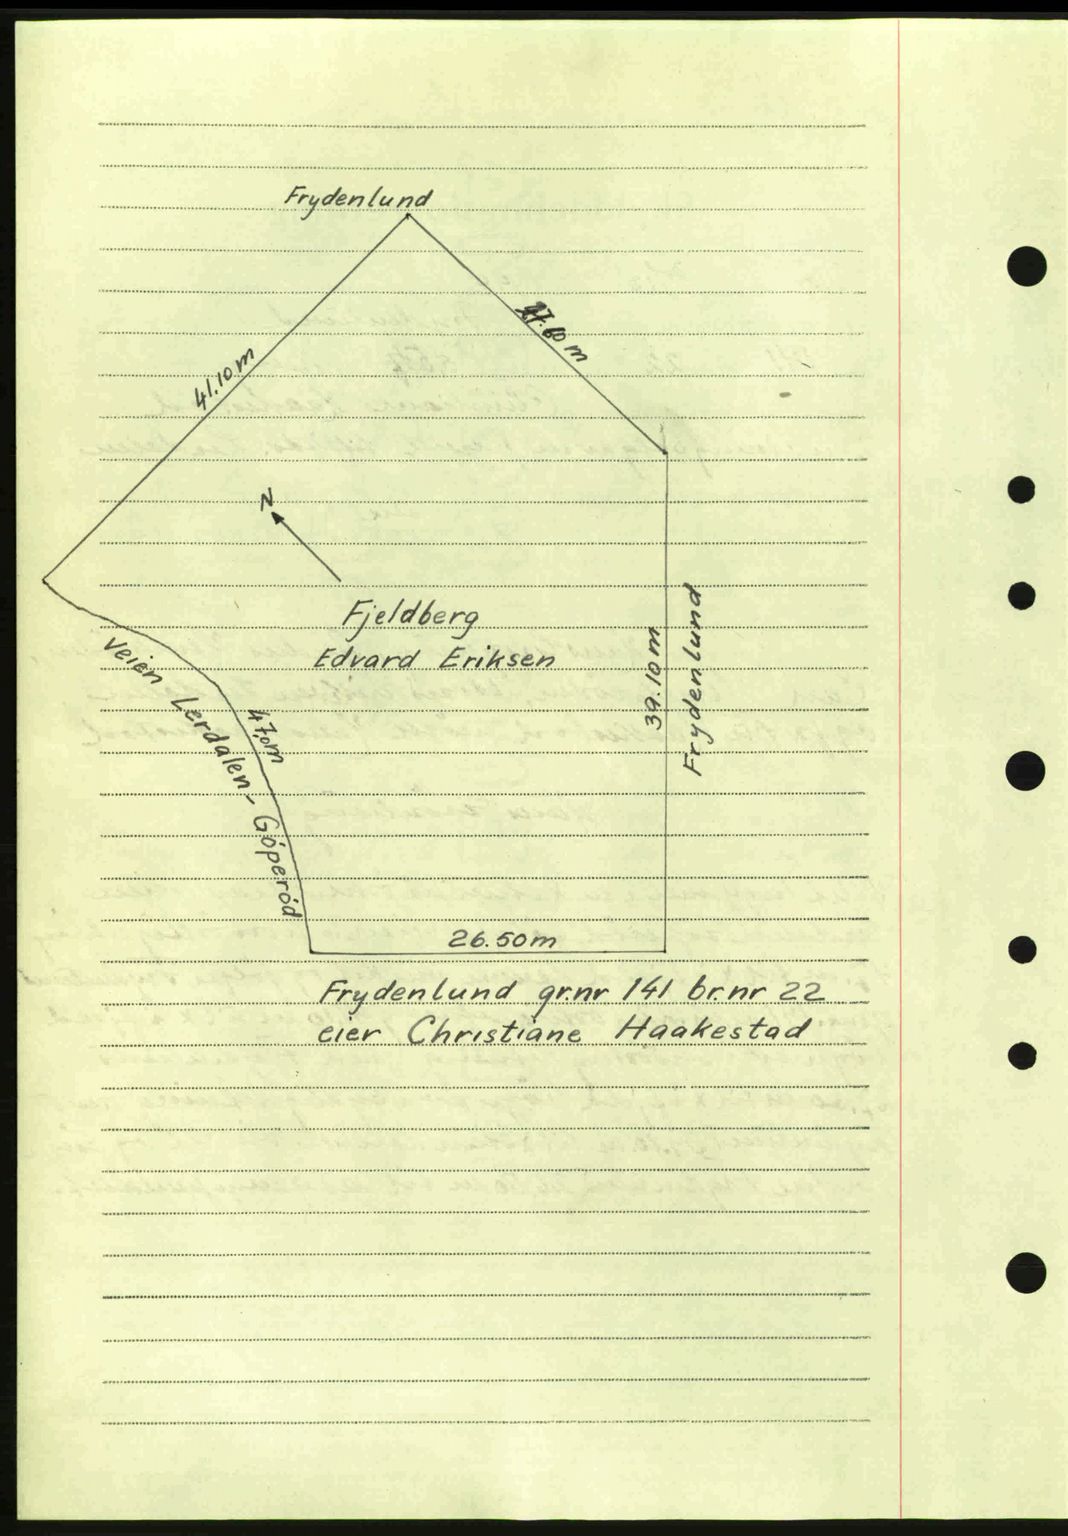 Frydenlund
27.60 m
41.10 m
N
Fjeldberg
Edvard Eriksen
39.10 m
Frydenlund
Veien Lerdalen - Góperód
47.0 m
26.50 m
Frydenlund gr.nr 141 br.nr 22
eier Christiane Haakestad